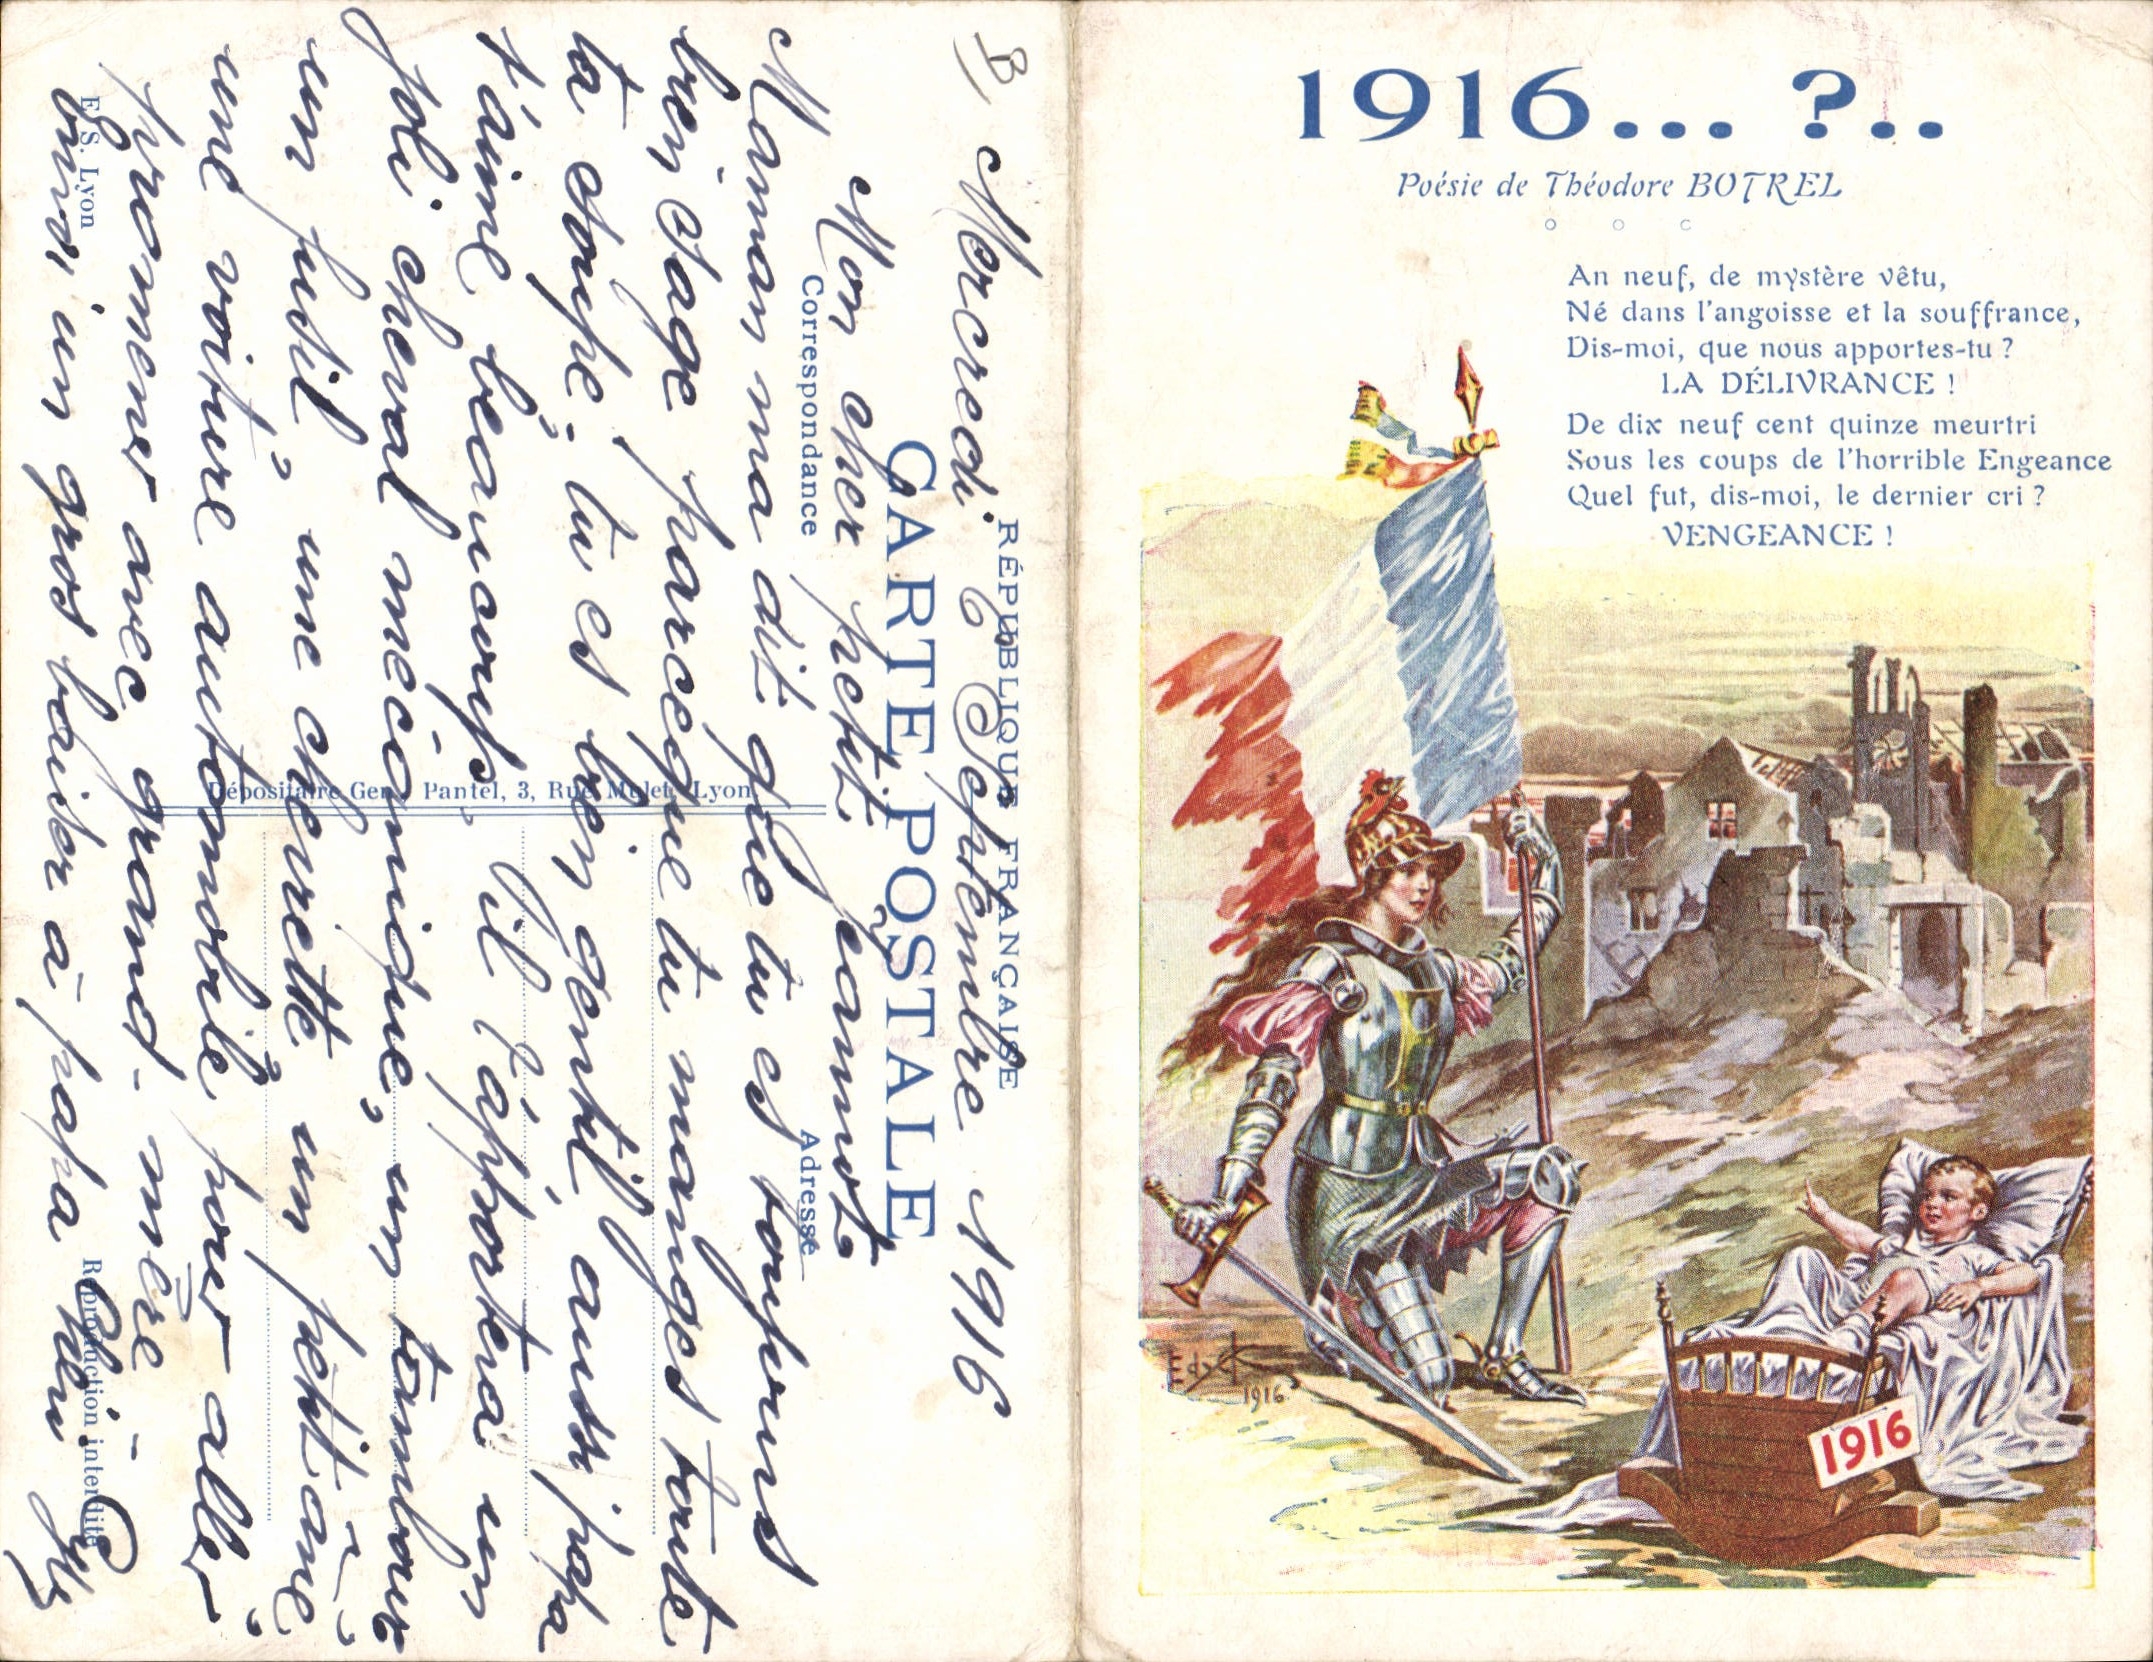 Mercredi 6 Septembre 1916
Mon cher petit Jeannot
Maman m'a dit que tu es toujours
bien sage parceque tu manges toute
ta soupe. tu es bien gentil, aussi papa
t'aime beaucoup, il t'apportera un
joli cheval mécanique, un tambour
un fusil, une chevrette, un petit âne,
une voiture automobile pour aller
promener avec grand-mère.
Envoi un gros baiser à papa
RÉPUBLIQUE FRANÇAISE
CARTE POSTALE
Correspondance
Adresse
Dépositaire Genl Pantel, 3, Rue Mulet, Lyon
E. S. Lyon
Reproduction interdite
B
1916... ?..
Poésie de Théodore BOTREL
An neuf, de mystère vêtu,
Né dans l'angoisse et la souffrance,
Dis-moi, que nous apportes-tu ?
LA DÉLIVRANCE !
De dix neuf cent quinze meurtri
Sous les coups de l'horrible Engeance
Quel fut, dis-moi, le dernier cri ?
VENGEANCE !
1916
1916